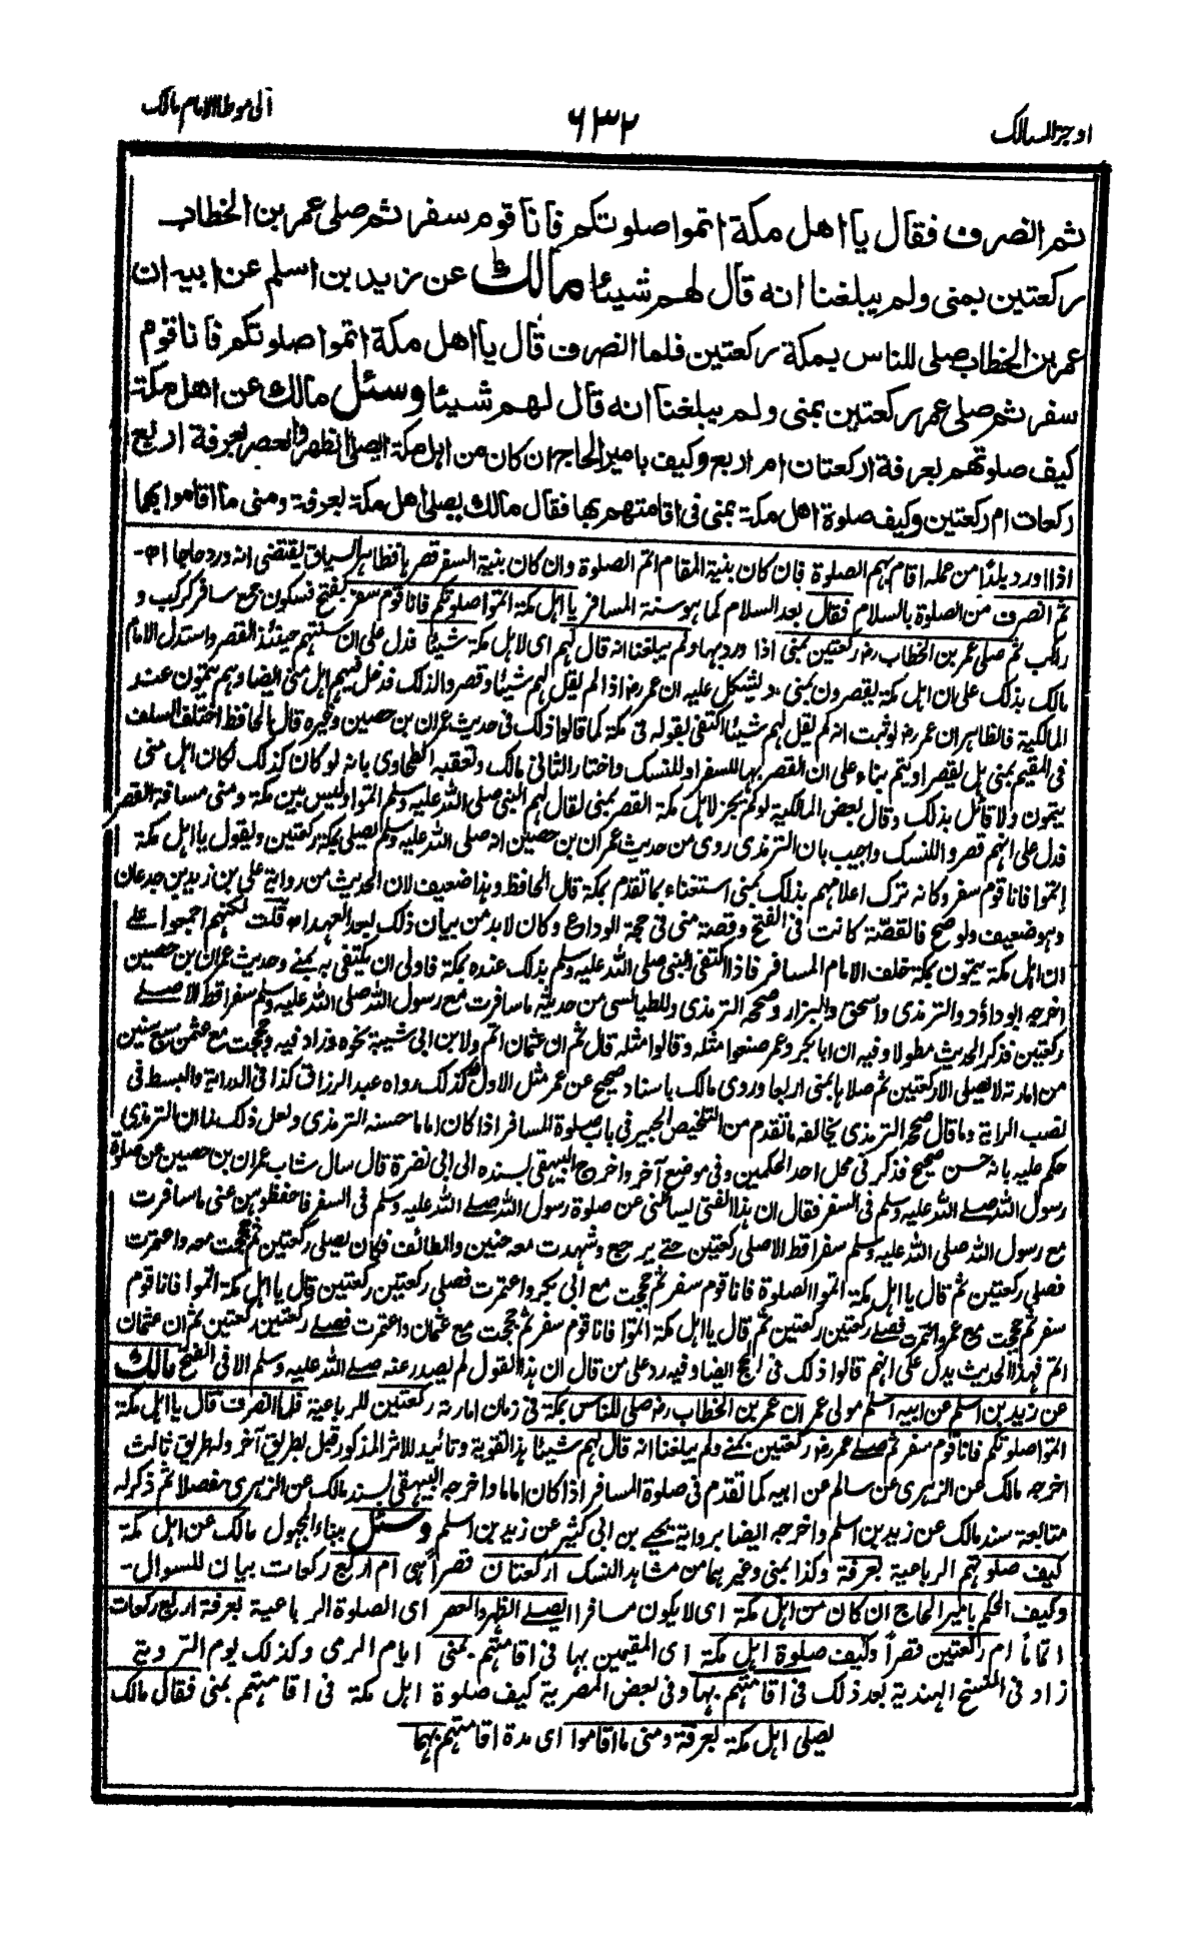 اوجز المسالك
٦٣٢
الى موطا الامام مالك
ثم انصرف فقال يا اهل مكة اتموا صلوتكم فانا قوم سفر ثم صلى عمر بن الخطاب
ركعتين بمنى ولم يبلغنا انه قال لهم شيئا مالك عن زيد بن اسلم عن ابيه ان
عمر بن الخطاب صلى للناس بمكة ركعتين فلما انصرف قال يا اهل مكة اتموا صلوتكم فانا قوم
سفر ثم صلى عمر ركعتين بمنى ولم يبلغنا انه قال لهم شيئا وسئل مالك عن اهل مكة
كيف صلوتهم بعرفة اركعتان ام اربع وكيف بامير الحاج ان كان من اهل مكة ايصلى الظهر والعصر بعرفة اربع
ركعات ام ركعتين وكيف صلوة اهل مكة بمنى فى اقامتهم بها فقال مالك يصلى اهل مكة بعرفة ومنى ما اقاموا بها
اذا اورد بلدًا من عمله اقام بهم الصلوة فان كان بنية المقام اتم الصلوة وان كان بنية السفر قصرها فظاهر السياق يقتضى انه ورد حاجا اھ-
ثم انصرف من الصلوة بالسلام فقال بعد السلام كما هو سنة المسافر يا اهل مكة اتموا صلوتكم فانا قوم سفر بفتح فسكون جمع سافر كركب و
راكب ثم صلى عمر بن الخطاب رض ركعتين بمنى اذا ورد بها ولم يبلغنا انه قال لهم اى لاهل مكة شيئا فدل على ان سنتهم حينئذ القصر واستدل الامام
مالك بذلك على ان اهل مكة يقصرون بمنى. ويشكل عليه ان عمر رض اذا لم يقل لهم شيئا وقصروا لذلك فدخل فيهم اهل منى ايضا وهم يتمون عند
المالكية فالظاهر ان عمر رض لو ثبت انه لم يقل لهم شيئا اكتفى بقوله فى مكة كما قالوا ذلك فى حديث عمران بن حصين وغيره قال الحافظ اختلف السلف
فى المقيم بمنى هل يقصر او يتم بناء على ان القصر بها للسفر او للنسك واختار الثانى مالك وتعقبه الطحاوى بانه لو كان كذلك لكان اهل منى
يتمون ولا قائل بذلك وقال بعض المالكية لو لم يجز لاهل مكة القصر بمنى لقال لهم النبى صلى الله عليه وسلم اتموا وليس بين مكة ومنى مسافة القصر
فدل على انهم قصروا للنسك واجيب بان الترمذى روى من حديث عمران بن حصين انه صلى الله عليه وسلم يصلى بمكة ركعتين ويقول يا اهل مكة
اتموا فانا قوم سفر وكانه ترك اعلامهم بذلك بمنى استغناء بما تقدم بمكة قال الحافظ وهذا ضعيف لان الحديث من رواية على بن زيد بن جدعان
وهو ضعيف ولو صح فالقصة كانت فى الفتح وقصة منى فى حجة الوداع وكان لابد من بيان ذلك لبعد العهد اھ قلت لكنهم اجمعوا على
ان اهل مكة يتمون بمكة خلف الامام المسافر فاذا اكتفى النبى صلى الله عليه وسلم بذلك عنده بمكة فاولى ان يكتفى به بمنى وحديث عمران بن حصين
اخرجه ابو داؤد والترمذى واسحق والبزار وصححه الترمذى وللطيالسى من حديثه ما سافرت مع رسول الله صلى الله عليه وسلم سفرا قط الا صلى
ركعتين فذكر الحديث مطولا وفيه ان ابا بكر وعمر صنعوا مثله وقالوا مثله قال ثم ان عثمان اتم ولابن ابى شيبة نحوه وزاد فيه وحججت مع عثمن سبع سنين
من امارته لا يصلى الا ركعتين ثم صلاها بمنى اربعا وروى مالك باسناد صحيح عن عمر مثل الاول وكذلك رواه عبد الرزاق كذا فى الدراية والبسط فى
نصب الراية وما قال صححه الترمذى يخالفه ما تقدم من التلخيص الحبير فى باب صلوة المسافر اذا كان اماما حسنه الترمذى ولعل ذلك لما ان الترمذى
حكم عليه بانه حسن صحيح فذكر فى محل احد الحكمين وفى موضع آخر واخرج البيهقى بسنده الى ابى نضرة قال سال شاب عمران بن حصين عن صلوة
رسول الله صلى الله عليه وسلم فى السفر فقال ان هذا الفتى يسألنى عن صلوة رسول الله صلى الله عليه وسلم فى السفر فاحفظوهن عنى ما سافرت
مع رسول الله صلى الله عليه وسلم سفرا قط الا صلى ركعتين حتى يرجع وشهدت معه حنين والطائف فكان يصلى ركعتين ثم حججت معه واعتمرت
فصلى ركعتين ثم قال يا اهل مكة اتموا الصلوة فانا قوم سفر ثم حججت مع ابى بكر واعتمرت فصلى ركعتين ركعتين قال يا اهل مكة اتموا فانا قوم
سفر ثم حججت مع عمر واعتمرت فصلى ركعتين ركعتين ثم قال يا اهل مكة اتموا فانا قوم سفر ثم حججت مع عثمان واعتمرت فصلى ركعتين ركعتين ثم ان عثمان
اتم فهذا الحديث يدل على انهم قالوا ذلك فى الحج ايضا وفيه رد على من قال ان هذا القول لم يصدر عنه صلى الله عليه وسلم الا فى الفتح مالك
عن زيد بن اسلم عن ابيه اسلم مولى عمر ان عمر بن الخطاب رض صلى للناس بمكة فى زمان امارته ركعتين للرباعية فلما انصرف قال يا اهل مكة
اتموا صلوتكم فانا قوم سفر ثم صلى عمر رض ركعتين بمنى ولم يبلغنا انه قال لهم شيئا هذا لتقوية وتائيد للاثر المذكور قبل بطريق آخر ولطريق ثالث
اخرجه مالك عن الزهرى عن سالم عن ابيه كما تقدم فى صلوة المسافر اذا كان اماما واخرجه البيهقى بسند مالك عن الزهرى مفصلا ثم ذكر له
متابعة سند مالك عن زيد بن اسلم واخرجه ايضا برواية يحيى بن ابى كثير عن زيد بن اسلم وسئل ببناء المجهول مالك عن اهل مكة
كيف صلوتهم الرباعية بعرفة وكذا بمنى وغيرهما من مشاهد النسك اركعتان قصراً هى ام اربع ركعات بيان للسوال-
وكيف الحكم بامير الحاج ان كان من اهل مكة اى لا يكون مسافرا ايصلى الظهر والعصر اى الصلوة الرباعية بعرفة اربع ركعات
اتماماً ام ركعتين قصراً وكيف صلوة اهل مكة اى المقيمين بها فى اقامتهم بمنى ايام الرمى وكذلك يوم التروية
زاد فى النسخ الهندية بعد ذلك فى اقامتهم بها وفى بعض المصرية كيف صلوة اهل مكة فى اقامتهم بمنى فقال مالك
يصلى اهل مكة بعرفة ومنى ما اقاموا اى مدة اقامتهم بهما